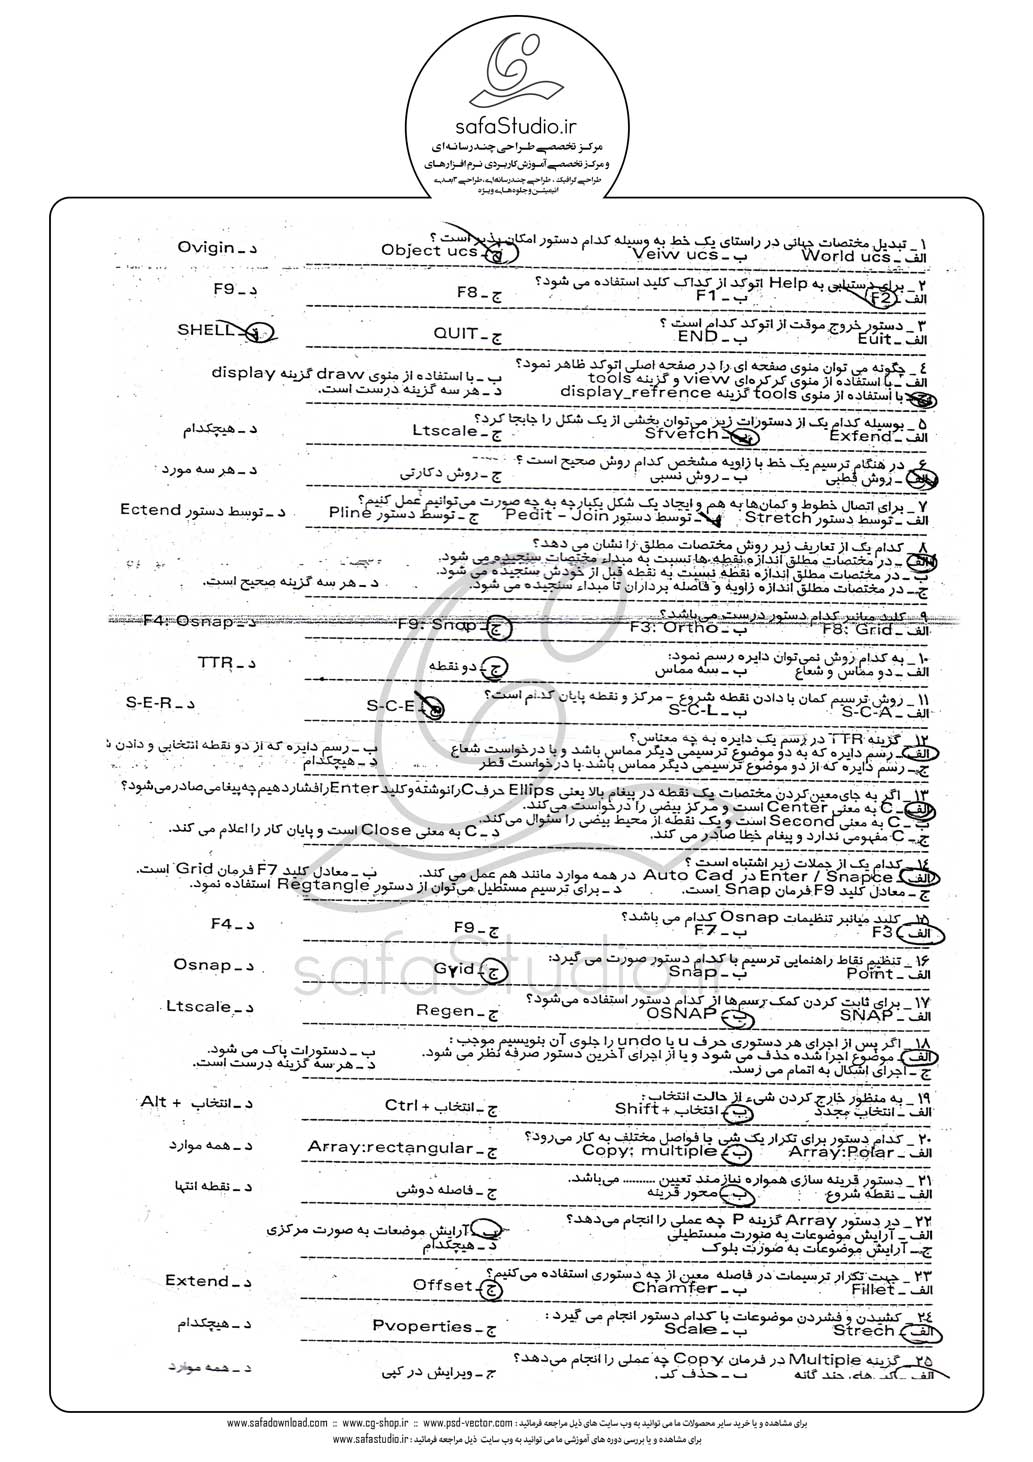 safaStudio.ir
مرکز تخصصی طراحی چندرسانه‌ای
و مرکز تخصصی آموزش کاربردی نرم افزارهای
طراحی گرافیک ، طراحی چندرسانه‌ای، طراحی ۳بعدی
انیمیشن و جلوه‌های ویژه
۱_ تبدیل مختصات جهانی در راستای یک خط به وسیله کدام دستور امکان پذیر است ؟
الف_ World ucs ب_ Veiw ucs ج_ Object ucs د_ Ovigin
۲_ برای دستیابی به Help اتوکد از کداک کلید استفاده می شود؟
الف_ F2 ب_ F1 ج_ F8 د_ F9
۳_ دستور خروج موقت از اتوکد کدام است ؟
الف_ Euit ب_ END ج_ QUIT د_ SHELL
٤_ چگونه می توان منوی صفحه ای را در صفحه اصلی اتوکد ظاهر نمود؟
الف_ با استفاده از منوی کرکره‌ای view و گزینه tools ب_ با استفاده از منوی draw گزینه display
ج_ با استفاده از منوی tools گزینه display_refrence د_ هر سه گزینه درست است.
۵_ بوسیله کدام یک از دستورات زیر می‌توان بخشی از یک شکل را جابجا کرد؟
الف_ Exfend ب_ Sfvefch ج_ Ltscale د_ هیچکدام
۶_ در هنگام ترسیم یک خط با زاویه مشخص کدام روش صحیح است ؟
الف_ روش قطبی ب_ روش نسبی ج_ روش دکارتی د_ هر سه مورد
۷_ برای اتصال خطوط و کمان‌ها به هم و ایجاد یک شکل یکپارچه به چه صورت می‌توانیم عمل کنیم؟
الف_ توسط دستور Stretch ب_ توسط دستور Pedit - Join ج_ توسط دستور Pline د_ توسط دستور Ectend
۸_ کدام یک از تعاریف زیر روش مختصات مطلق را نشان می دهد؟
الف_ در مختصات مطلق اندازه نقطه ها نسبت به مبداء مختصات سنجیده می شود.
ب_ در مختصات مطلق اندازه نقطه نسبت به نقطه قبل از خودش سنجیده می شود.
ج_ در مختصات مطلق اندازه زاویه و فاصله برداران تا مبداء سنجیده می شود. د_ هر سه گزینه صحیح است.
۹_ کلید میانبر کدام دستور درست می‌باشد؟
الف_ F8: Grid ب_ F3: Ortho ج_ F9: Snap د_ F4: Osnap
۱۰_ به کدام روش نمی‌توان دایره رسم نمود:
الف_ دو مماس و شعاع ب_ سه مماس ج_ دو نقطه د_ TTR
۱۱_ روش ترسیم کمان با دادن نقطه شروع - مرکز و نقطه پایان کدام است؟
الف_ S-C-A ب_ S-C-L ج_ S-C-E د_ S-E-R
۱۲_ گزینه TTR در رسم یک دایره به چه معناس؟
الف_ رسم دایره که به دو موضوع ترسیمی دیگر مماس باشد و با درخواست شعاع ب_ رسم دایره که از دو نقطه انتخابی و دادن
ج_ رسم دایره که از دو موضوع ترسیمی دیگر مماس باشد با درخواست قطر د_ هیچکدام
۱۳_ اگر به جای معین کردن مختصات یک نقطه در پیغام بالا یعنی Ellips حرف C را نوشته و کلید Enter را فشار دهیم چه پیغامی صادر می‌شود؟
الف_ C به معنی Center است و مرکز بیضی را درخواست می‌کند.
ب_ C به معنی Second است و یک نقطه از محیط بیضی را سئوال می‌کند.
ج_ C مفهومی ندارد و پیغام خطا صادر می کند. د_ C به معنی Close است و پایان کار را اعلام می کند.
۱٤_ کدام یک از جملات زیر اشتباه است ؟
الف_ Enter / Snapce در Auto Cad در همه موارد مانند هم عمل می کند. ب_ معادل کلید F7 فرمان Grid است.
ج_ معادل کلید F9 فرمان Snap است. د_ برای ترسیم مستطیل می‌توان از دستور Regtangle استفاده نمود.
۱۵_ کلید میانبر تنظیمات Osnap کدام می باشد؟
الف_ F3 ب_ F7 ج_ F9 د_ F4
۱۶_ تنظیم نقاط راهنمایی ترسیم با کدام دستور صورت می گیرد:
الف_ Point ب_ Snap ج_ Grid د_ Osnap
safaStudio.ir
۱۷_ برای ثابت کردن کمک رسم‌ها از کدام دستور استفاده می‌شود؟
الف_ SNAP ب_ OSNAP ج_ Regen د_ Ltscale
۱۸_ اگر پس از اجرای هر دستوری حرف u یا undo را جلوی آن بنویسیم موجب :
الف_ موضوع اجرا شده حذف می شود و یا از اجرای آخرین دستور صرفه نظر می شود. ب_ دستورات پاک می شود.
ج_ اجرای اشکال به اتمام می رسد. د_ هر سه گزینه درست است.
۱۹_ به منظور خارج کردن شیء از حالت انتخاب :
الف_ انتخاب مجدد ب_ انتخاب + Shift ج_ انتخاب + Ctrl د_ انتخاب + Alt
۲۰_ کدام دستور برای تکرار یک شی با فواصل مختلف به کار می‌رود؟
الف_ Array:Polar ب_ Copy: multiple ج_ Array:rectangular د_ همه موارد
۲۱_ دستور قرینه سازی همواره نیازمند تعیین .......... می‌باشد.
الف_ نقطه شروع ب_ محور قرینه ج_ فاصله دوشی د_ نقطه انتها
۲۲_ در دستور Array گزینه P چه عملی را انجام می‌دهد؟
الف_ آرایش موضوعات به صورت مستطیلی ب_ آرایش موضعات به صورت مرکزی
ج_ آرایش موضوعات به صورت بلوک د_ هیچکدام
۲۳_ جهت تکرار ترسیمات در فاصله معین از چه دستوری استفاده می‌کنیم؟
الف_ Fillet ب_ Chamfer ج_ Offset د_ Extend
۲٤_ کشیدن و فشردن موضوعات با کدام دستور انجام می گیرد :
الف_ Strech ب_ Scale ج_ Pvoperties د_ هیچکدام
۲۵_ گزینه Multiple در فرمان Copy چه عملی را انجام می‌دهد؟
الف_ کپی‌های چند گانه ب_ حذف کپی ج_ ویرایش در کپی د_ همه موارد
برای مشاهده و یا خرید سایر محصولات ما می توانید به وب سایت های ذیل مراجعه فرمائید : www.safadownload.com :: www.cg-shop.ir :: www.psd-vector.com
برای مشاهده و یا بررسی دوره های آموزشی ما می توانید به وب سایت ذیل مراجعه فرمائید : www.safastudio.ir